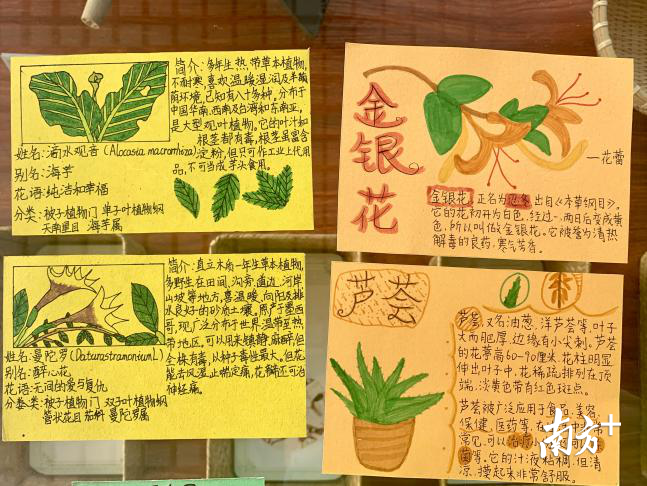 简介:多年生热带草本植物,
不耐寒,喜欢温暖湿润及半荫
荫环境,已知有八十多种,分布于
中国华南、西南及台湾和东南亚,
是大型观叶植物。它的叶汁和
根茎都有毒,根茎虽富含
淀粉,但只可作工业上代用
品,不可当成芋头食用。
姓名:滴水观音(Alocasia macrorrhiza)
别名:海芋
花语:纯洁和幸福
分类:被子植物门 单子叶植物纲
天南星目 海芋属
金银花
一花蕾
金银花,正名为忍冬,出自《本草纲目》。
它的花初开为白色,经过一、两日后变成黄
色,所以叫做金银花。它被誉为清热
解毒的良药,寒气芳香。
简介:直立木质一年生草本植物,
多野生在田间、沟旁、道边、河岸
山坡等地方,喜温暖、向阳及排
水良好的砂质土壤,原产于墨西
哥,现广泛分布于世界温带至热
带地区,可以用来镇静,麻醉,但
全株有毒,以种子毒性最大,但花
能去风湿,止喘定痛,花瓣还可治
神经痛。
姓名:曼陀罗(DaturastramoniumL)
别名:醉心花
花语:无间的爱与复仇
分类类:被子植物门 双子叶植物纲
管状花目 茄科 曼陀罗属
芦荟
芦荟,又名油葱、洋芦荟等,叶子
大而肥厚,边缘有小尖刺。芦荟
的花葶高60-90厘米,花柱明显
伸出叶子中,花稀疏排列在顶
端,淡黄色带有红色斑点。
芦荟被广泛应用于食品、美容、
保健、医药等,在
常见,可以治疗小
菌等,它的汁液粘稠,但清
凉,摸起来非常舒服。
南方+